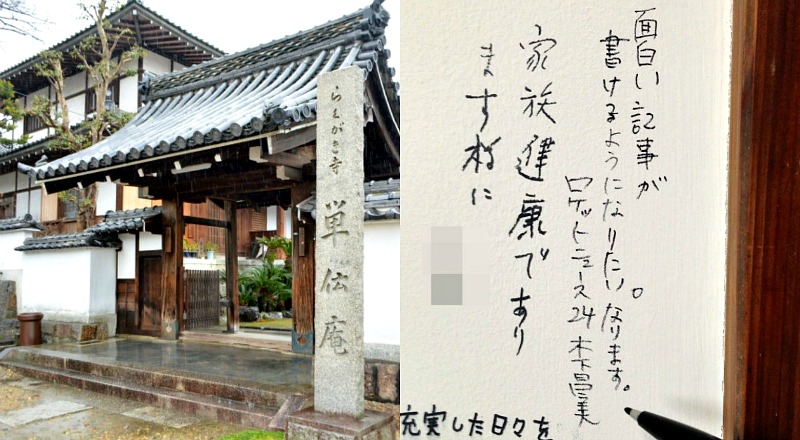 らくがき寺
単伝庵
面白い記事が
書けるようになりたい。なります。
ロケットニュース24 木下昌美
家族健康であり
ます様に
充実した日々を